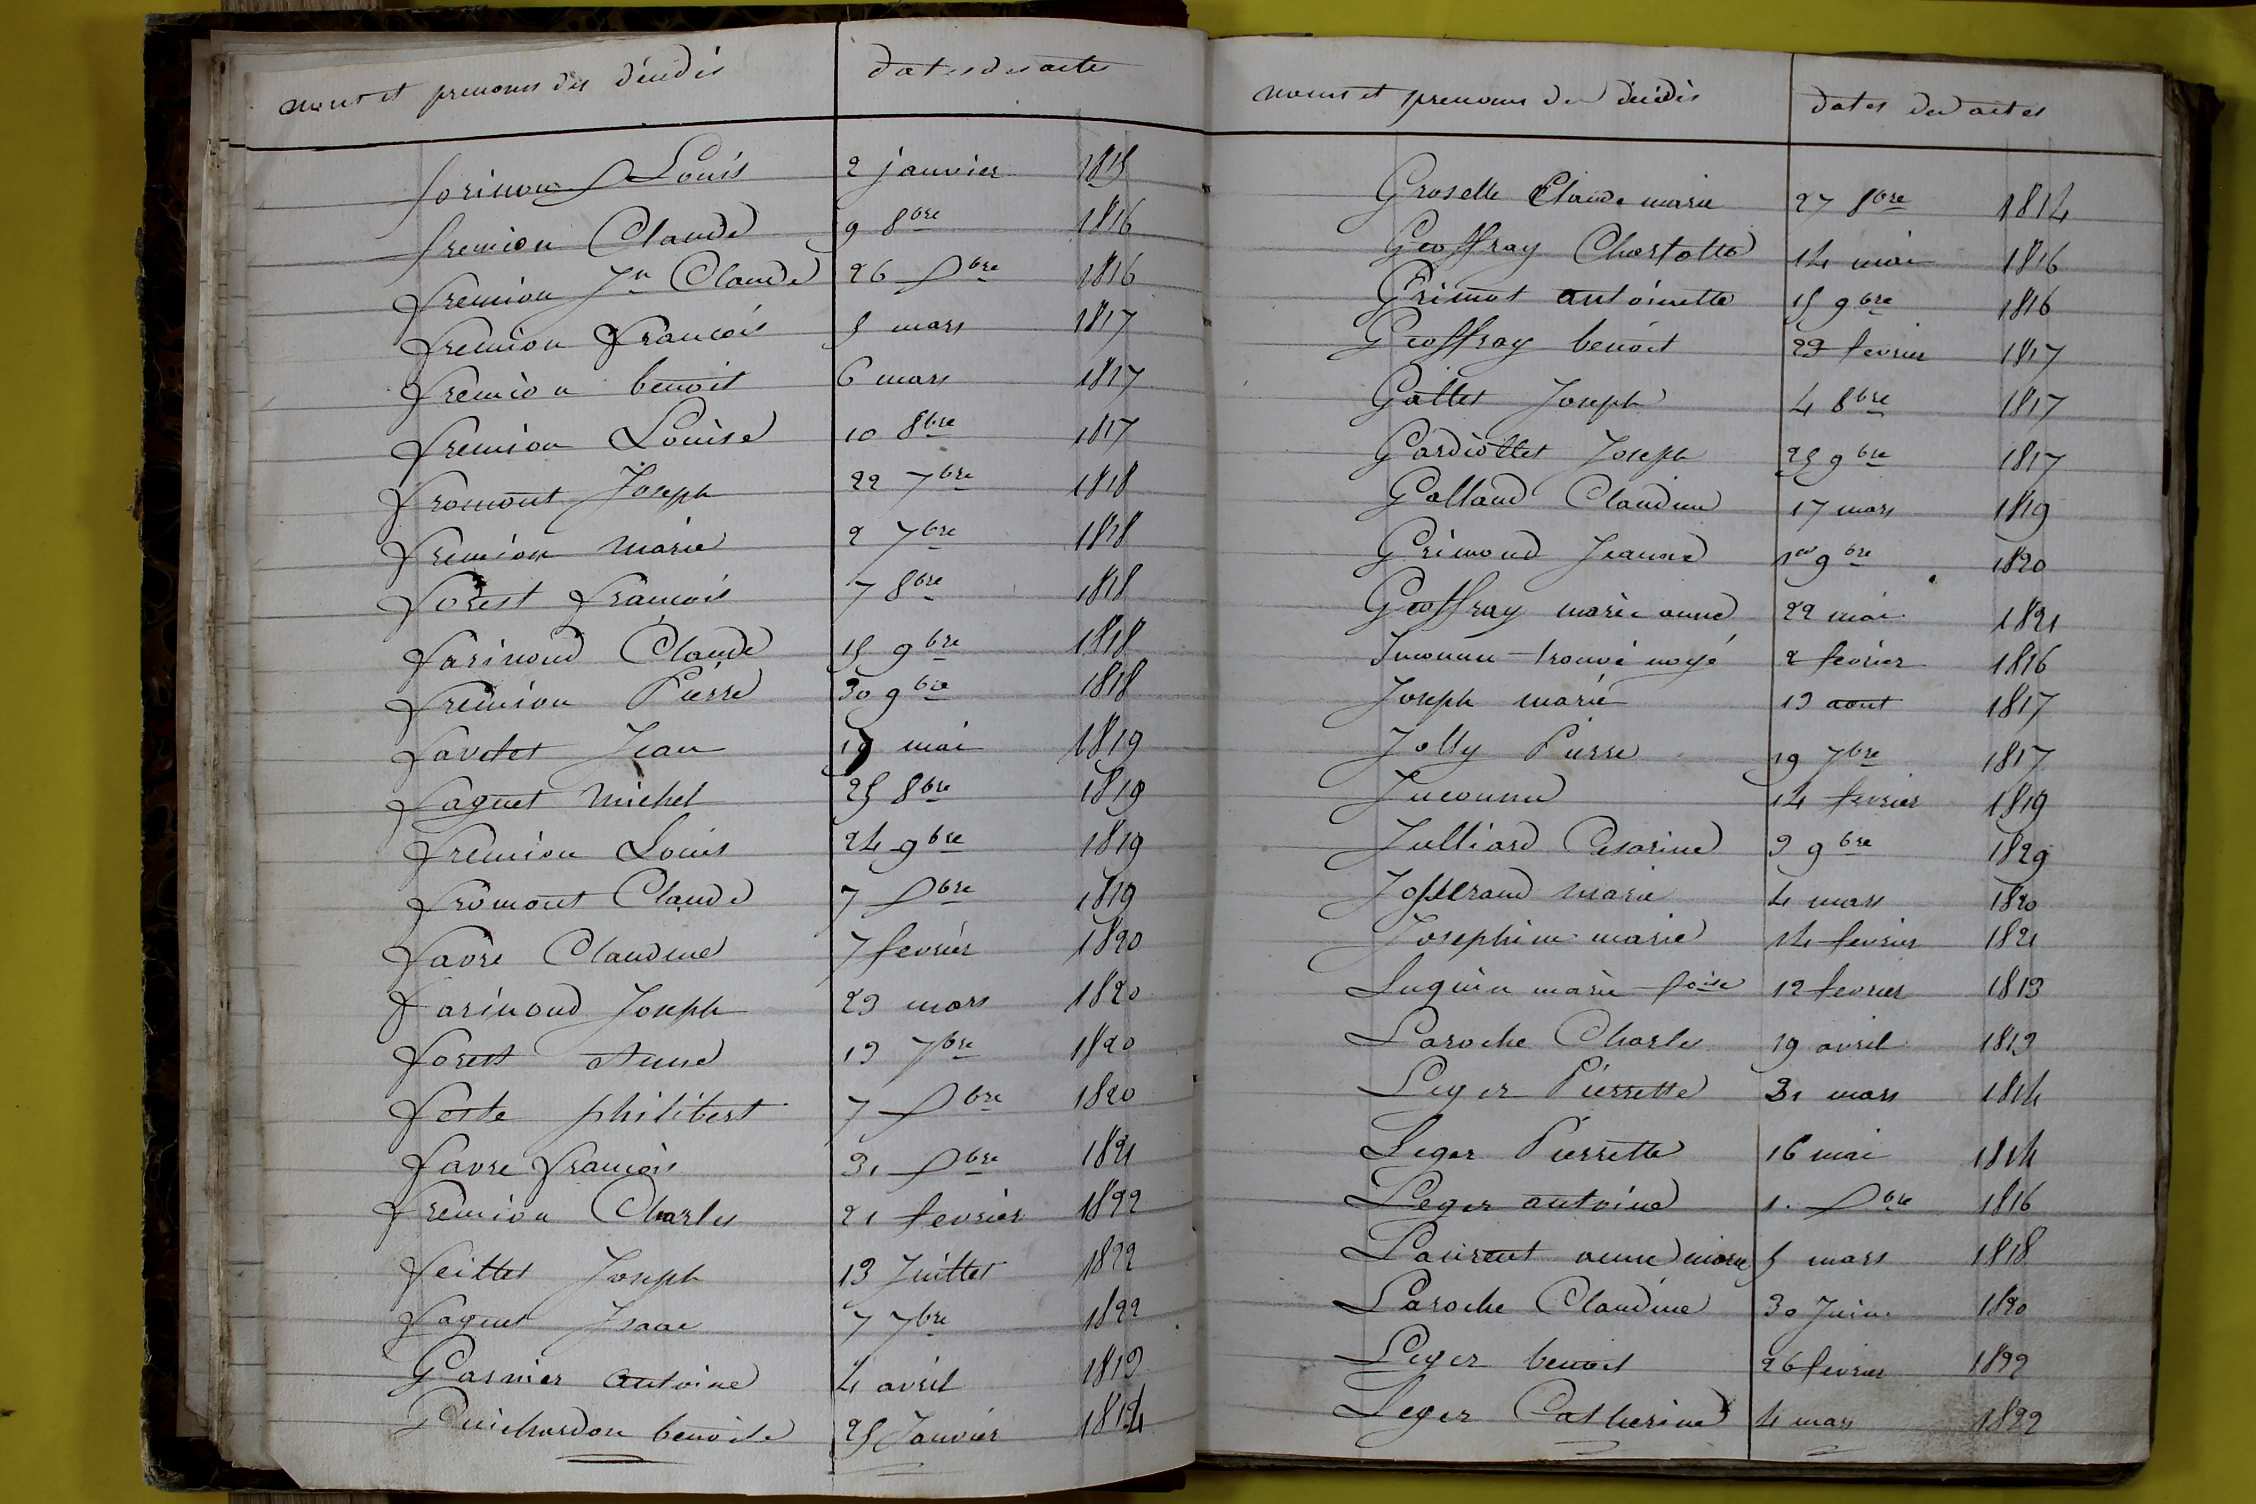 noms et prenoms des décédés dates des actes
farinoux Louis 2 janvier 1815
fremion Claude 9 8bre 1816
fremion Jn Claude 26 Xbre 1816
fremion François 5 mars 1817
fremion benoit 6 mars 1817
fremion Louise 10 8bre 1817
fromont Joseph 22 7bre 1818
fremion marie 2 7bre 1818
forest françois 7 8bre 1818
farinoud Claude 15 9bre 1818
fremion Pierre 30 9bre 1818
favetet Jean 19 mai 1819
faguet michel 25 8bre 1819
fremion Louis 24 9bre 1819
fromont Claude 7 Xbre 1819
favre Claudine 7 fevrier 1820
farinoud Joseph 23 mars 1820
forest anne 13 7bre 1820
foste philibert 7 Xbre 1820
favre françois 31 Xbre 1821
fremion Charles 21 fevrier 1822
feillet Joseph 13 Juillet 1822
faguet Isaac 7 7bre 1822
Garnier antoine 4 avril 1813
Guichardon benoite 25 Janvier 1814
noms et prenoms des décédés dates des actes
Groselle Claude marie 27 8bre 1814
Geoffray Charlotte 14 mai 1816
Grimot antoinette 15 9bre 1816
Geoffray benoit 23 fevrier 1817
Gallet Joseph 4 8bre 1817
Gardiollet Joseph 25 9bre 1817
Galland Claudine 17 mars 1819
Grimoud Jeanne 1er 9bre 1820
Geoffray marie anne 22 mai 1821
Inconnu trouvé noyé 2 fevrier 1816
Joseph marie 13 aout 1817
Jolly Pierre 19 7bre 1817
Inconnu 14 fevrier 1819
Julliard Cesarine 3 9bre 1829
Josserand marie 4 mars 1820
Josephine marie 14 fevrier 1821
Luguin marie foise 12 fevrier 1813
Laroche Charles 19 avril 1813
Leger Pierrette 31 mars 1814
Leger Pierrette 16 mai 1814
Leger antoine 1. Xbre 1816
Laurent anne marie 5 mars 1818
Laroche Claudine 30 Juin 1820
Leger benoit 26 fevrier 1822
Leger Catherine 4 mars 1822